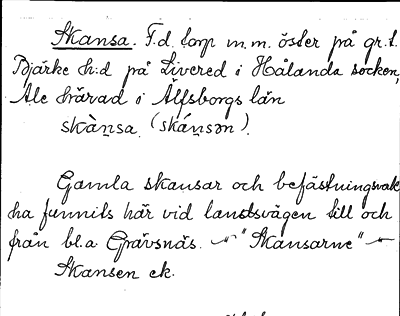 Skansa. F.d. torp m.m. öster på gr. t.
Bjärke h:d på Livered i Hålanda socken,
Ale härad i Älfsborgs län
skàn̲sa (skán̲sən).
Gamla skansar och befästningsvak
ha funnits här vid landsvägen till och
från bl.a Gräfsnäs. "Skansarne"
Skansen ek.